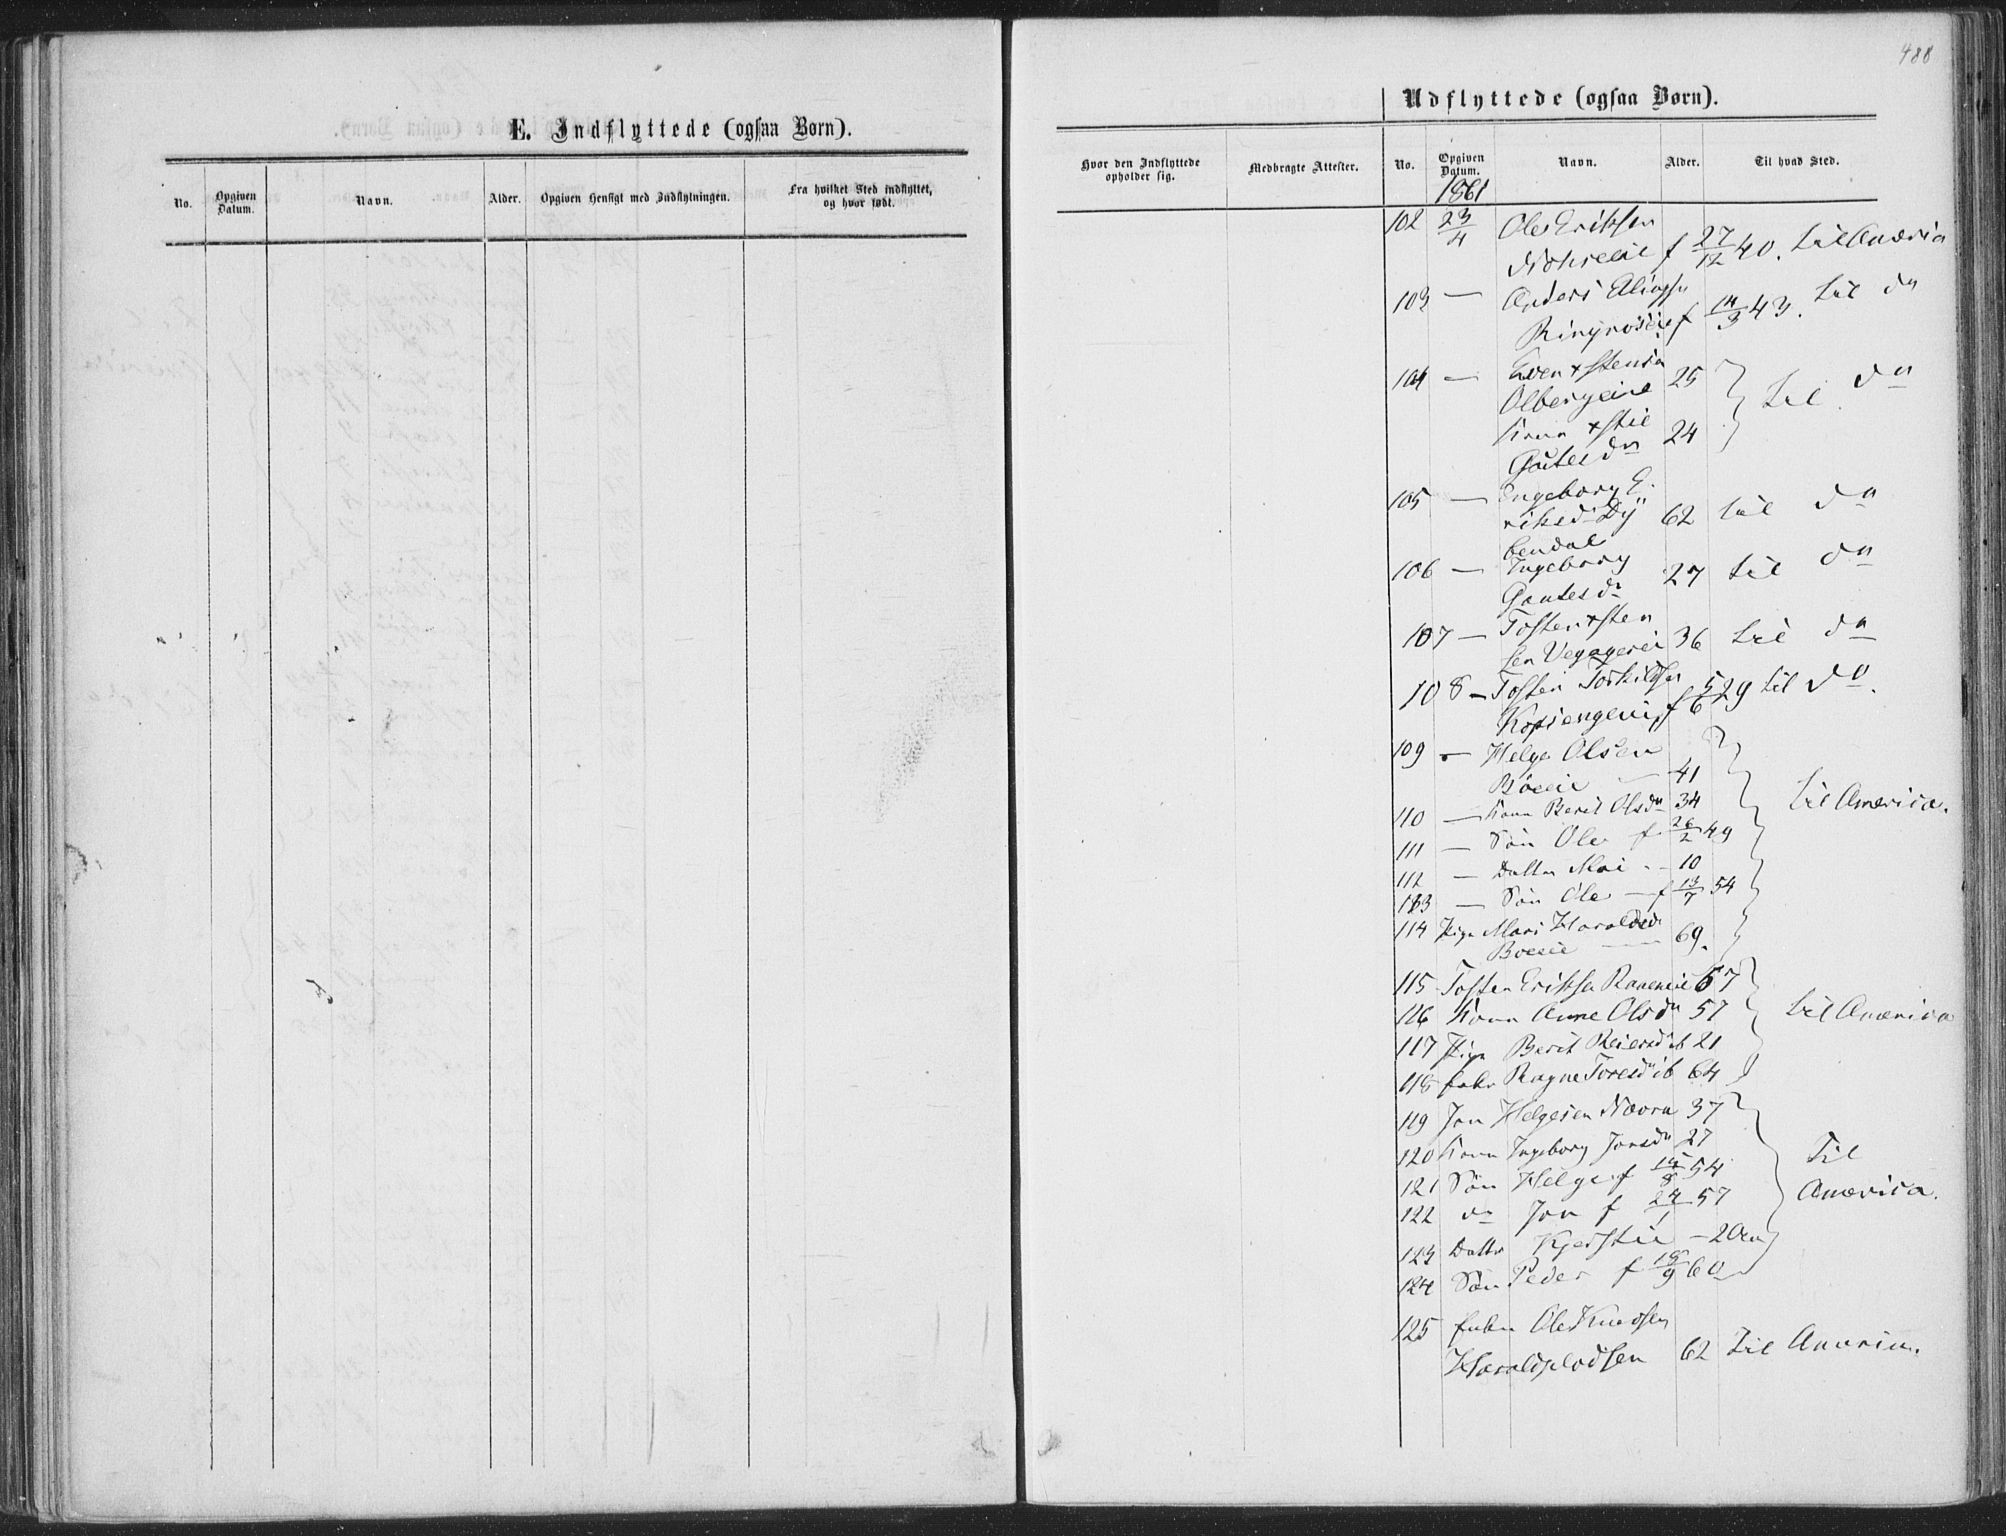 488
E. Indflyttede (ogsaa Børn).
No.
Opgiven Datum.
Navn.
Alder.
Opgiven Hensigt med Indflytningen.
Fra hvilket Sted indflyttet, og hvor født.
Udflyttede (ogsaa Børn).
Hvor den Indflyttede opholder sig.
Medbragte Attester.
No.
Opgiven Datum.
Navn.
Alder.
Til hvad Sted.
1861
102 23/4 Ole Eriksen
f 27/12 40. til America
103 — Anders
f 14/3 43. til do
104 — Even
25
Kone
Gautesdr 24 til do
105 — Ingeborg E-
riksdr
bendal 62 til do
106 — Ingeborg
Gautesdr 27 til do
107 — Tosten xsten
sen 36 til do
108 — Tosten Torkildsen
f 5/6 29 til do.
109 — Helge Olsen
Böeeie — 41
110 — Kone Berit Olsdr 34 til America.
111 — Søn Ole f 26/2 49
112 — Datter Mari — 10
113 — Søn Ole — f 13/7 54
114 Pige Mari Haraldsdr
Böeeie — 69.
115 Tosten Eriksen 67
116 Kone Anne Olsdr 57 til America
117 Pige Berit Reiersdr ib 21
118 Ragne Toresdr ib 64
119 Jon Helgesen 37
120 Kone Ingeborg Jonsdr 27
Til
121 Søn Helge f 54
America.
122 do Jon f 24/1 57
123 Datter Kjerstie — 2
124 Søn Peder f 60
125 Ole Knudsen
62 til America.